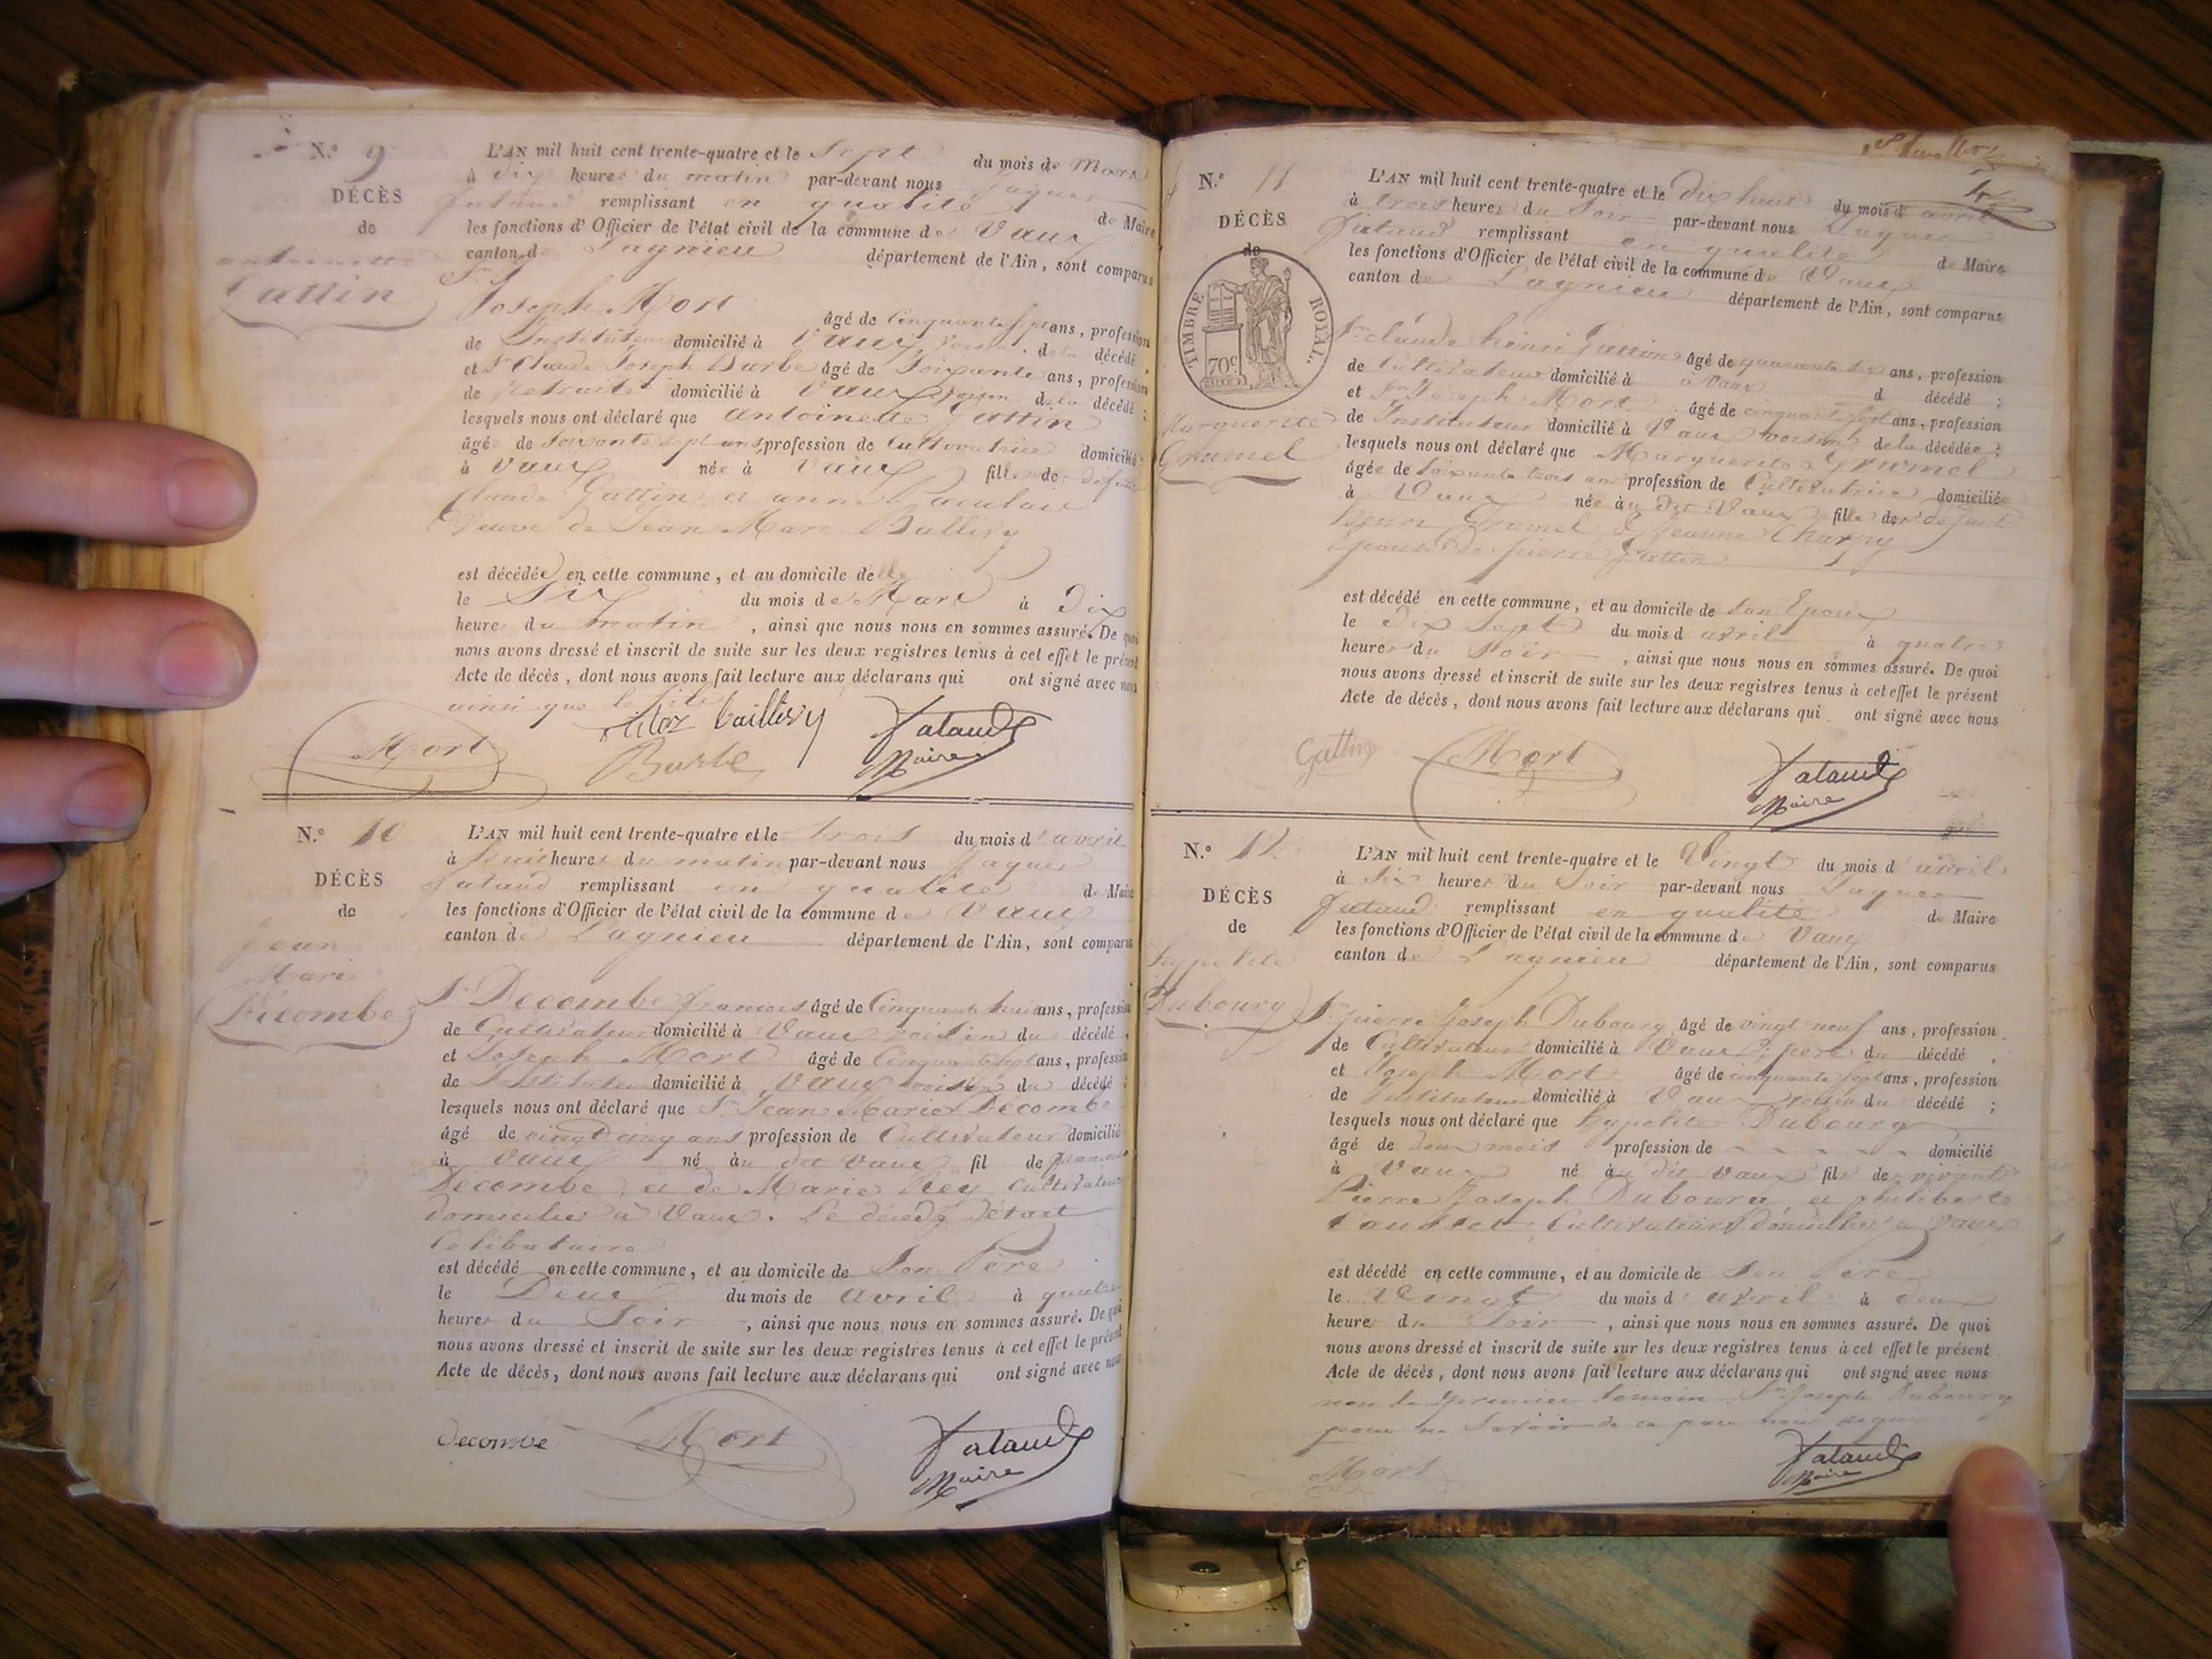 N.º 9
DÉCÈS
de
antoinette
Gattin
L'AN mil huit cent trente-quatre et le Sept du mois de Mars
à dix heures du matin par-devant nous Jaques
Jutaud remplissant en qualité de Maire
les fonctions d'Officier de l'état civil de la commune de Vaux
canton de Lagnieu département de l'Ain, sont comparus
Sr
Joseph Mort âgé de Cinquante Sept ans, profession
de Instituteur domicilié à Vaux voisin de la décédé
et Sr Claude Joseph Barbe âgé de Soixante ans, profession
de retraité domicilié à Vaux voisin de la décédé ;
lesquels nous ont déclaré que antoinette Gattin
âgé de soixante sept ans, profession de Cultivatrice domicilié
à Vaux née à Vaux fille de défunt
Claude Gattin et anne
Veuve de Jean Marc Ballivy
est décédée en cette commune, et au domicile delle
le Six du mois de Mars à Dix
heures du matin, ainsi que nous nous en sommes assuré. De quoi
nous avons dressé et inscrit de suite sur les deux registres tenus à cet effet le présent
Acte de décès, dont nous avons fait lecture aux déclarans qui ont signé avec nous
ainsi que le fils
Mort Barbe Jataud
Maire
N.º 10
DÉCÈS
de
Jean
Marie
Décombe
L'AN mil huit cent trente-quatre et le trois du mois d'avril
à huit heures du matin par-devant nous Jaques
Jutaud remplissant en qualité de Maire
les fonctions d'Officier de l'état civil de la commune de Vaux
canton de Lagnieu département de l'Ain, sont comparus
Sr Decombe francois âgé de Cinquante huit ans, profession
de Cultivateur domicilié à Vaux voisin du décédé,
et Joseph Mort âgé de Cinquante Sept ans, profession
de Instituteur domicilié à Vaux voisin du décédé ;
lesquels nous ont déclaré que Sr Jean Marie Décombe
âgé de vingt cinq ans profession de Cultivateur domicilié
à Vaux né au dit Vaux fil de francois
Decombe et de Marie Rey Cultivateurs
domicilies à Vaux. Le décédé étant
Celibataire
est décédé en cette commune, et au domicile de Son Père
le Deux du mois de avril à quatre
heures du Soir, ainsi que nous nous en sommes assuré. De quoi
nous avons dressé et inscrit de suite sur les deux registres tenus à cet effet le présent
Acte de décès, dont nous avons fait lecture aux déclarans qui ont signé avec nous
Decombe Mort Jataud
Maire
N.º 11
DÉCÈS
de
TIMBRE ROYAL
70c
Marguerite
Grumel
L'AN mil huit cent trente-quatre et le dix huit du mois d'avril
à trois heures du Soir par-devant nous Jaques
Jutaud remplissant en qualité de Maire
les fonctions d'Officier de l'état civil de la commune de Vaux
canton de Lagnieu département de l'Ain, sont comparus
Sr claude henri Gattin âgé de quarante six ans, profession
de Cultivateur domicilié à à Vaux d décédé ;
et Sr Joseph Mort âgé de cinquante Sept ans, profession
de Instituteur domicilié à Vaux voisin de la décédée ;
lesquels nous ont déclaré que Marguerite Grumel
âgée de Soixante trois ans profession de Cultivatrice domiciliée
à Vaux née au dit Vaux fille des défunts
henri Grumel & Jeanne Charpy
Epouse de pierre Gattin
est décédé en cette commune, et au domicile de Son Epoux
le Dix Sept du mois d'avril à quatre
heures du Soir, ainsi que nous nous en sommes assuré. De quoi
nous avons dressé et inscrit de suite sur les deux registres tenus à cet effet le présent
Acte de décès, dont nous avons fait lecture aux déclarans qui ont signé avec nous
Gattin Mort Jataud
Maire
N.º 12
DÉCÈS
de
hypolite
Dubourg
L'AN mil huit cent trente-quatre et le Vingt du mois d'avril
à Six heures du Soir par-devant nous Jaques
Jutaud remplissant en qualité de Maire
les fonctions d'Officier de l'état civil de la commune de Vaux
canton de Lagnieu département de l'Ain, sont comparus
Sr pierre Joseph Dubourg âgé de vingt neuf ans, profession
de Cultivateur domicilié à Vaux père du décédé,
et Joseph Mort âgé de cinquante Sept ans, profession
de Instituteur domicilié à Vaux voisin du décédé ;
lesquels nous ont déclaré que hypolite Dubourg
âgé de deux mois profession de domicilié
à Vaux né au dit Vaux fils de vivants
Pierre Joseph Dubourg et philiberte
Cultivateurs domicilies à Vaux
est décédé en cette commune, et au domicile de Son Pere
le Vingt du mois d'avril à deux
heures du Soir, ainsi que nous nous en sommes assuré. De quoi
nous avons dressé et inscrit de suite sur les deux registres tenus à cet effet le présent
Acte de décès, dont nous avons fait lecture aux déclarans qui ont signé avec nous
non le premier temoin Sr Joseph Dubourg
pour ne Savoir de ce par nous requis
Mort Jataud
Maire